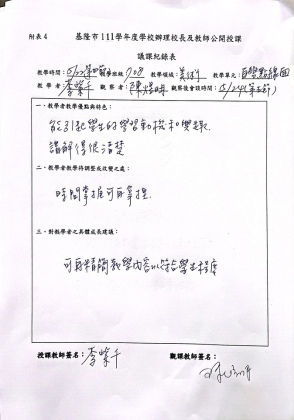 附表 4
基隆市 111 學年度學校辦理校長及教師公開授課
議課紀錄表
教學時間：5/22第四節 教學班級：708 教學領域：美術 教學單元：百變點線面
教 學 者：李榮千 觀 察 者：陳 觀察後會談時間：5/24(第五節)
一、教學者教學優點與特色：
能引起學生的學習動機和興趣.
講解得很清楚
二、教學者教學待調整或改變之處：
時間掌控可再拿捏.
三、對教學者之具體成長建議：
可再精簡教學內容以符合學生程度
授課教師簽名：李榮千
觀課教師簽名：